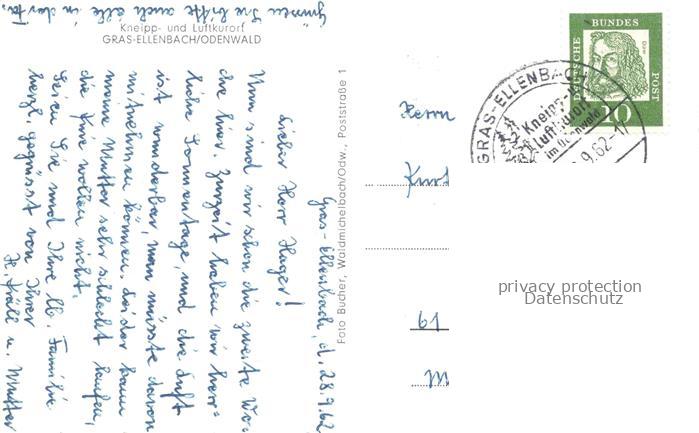 Kneipp- und Luftkurort
GRAS-ELLENBACH/ODENWALD
Gras-Ellenbach, d. 28.9.62
Lieber Herr Hager!
Nun sind wir schon die zweite Wo-
che hier. Zurzeit haben wir herr-
liche Sonnentage, und die Luft
ist wunderbar, man müsste davon
mitnehmen können. Leider kann
meine Mutter sehr schlecht laufen,
die Knie wollen nicht.
Seien Sie und Ihre lb. Familie
herzl. gegrüsst von Ihrer
u. Mutter
Grüssen Sie bitte auch alle in der
Foto Bucher, Waldmichelbach/Odw., Poststraße 1
DEUTSCHE BUNDES POST
Dürer
10
GRAS-ELLENBACH
Kneipp-
Luftkurort
im Odenwald
9.62-17
Herrn
Kurt
61
M
privacy protection
Datenschutz